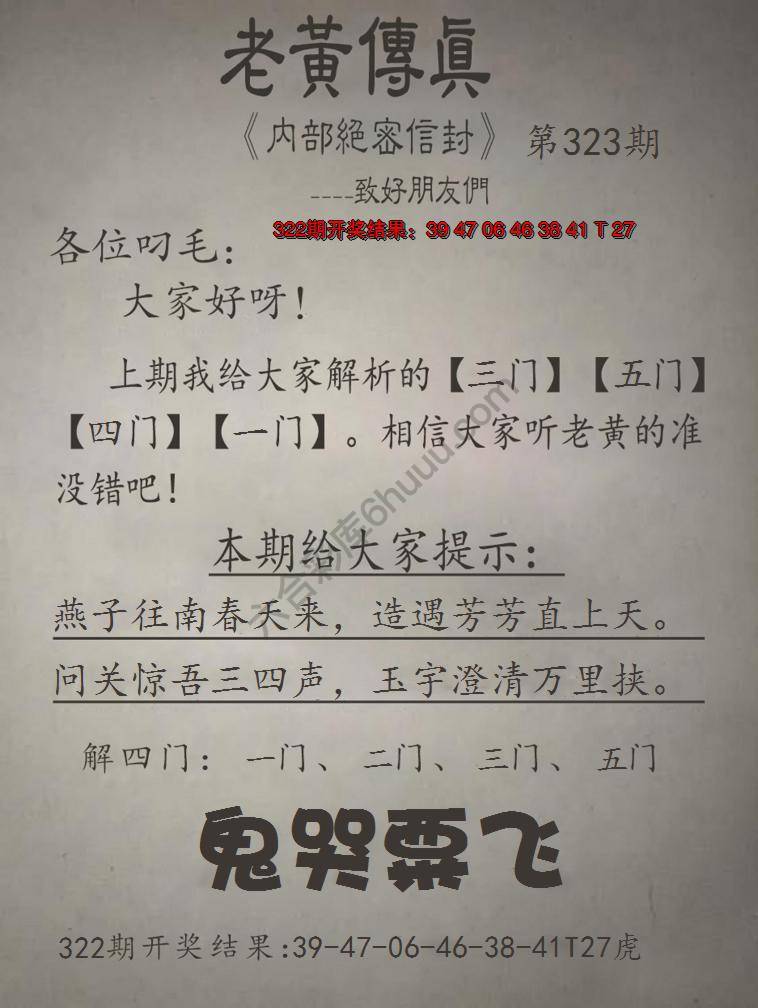 老黃傳眞
《内部絕密信封》 第323期
----致好朋友們
322期开奖结果：39 47 06 46 38 41 T 27
各位叼毛：
大家好呀！
上期我给大家解析的【三门】【五门】
【四门】【一门】。相信大家听老黄的准
没错吧！
本期给大家提示：
燕子往南春天来，造遇芳芳直上天。
问关惊吾三四声，玉宇澄清万里挟。
解四门： 一门、 二门、 三门、 五门
鬼哭粟飞
322期开奖结果:39-47-06-46-38-41T27虎
六合彩库6huuu.com